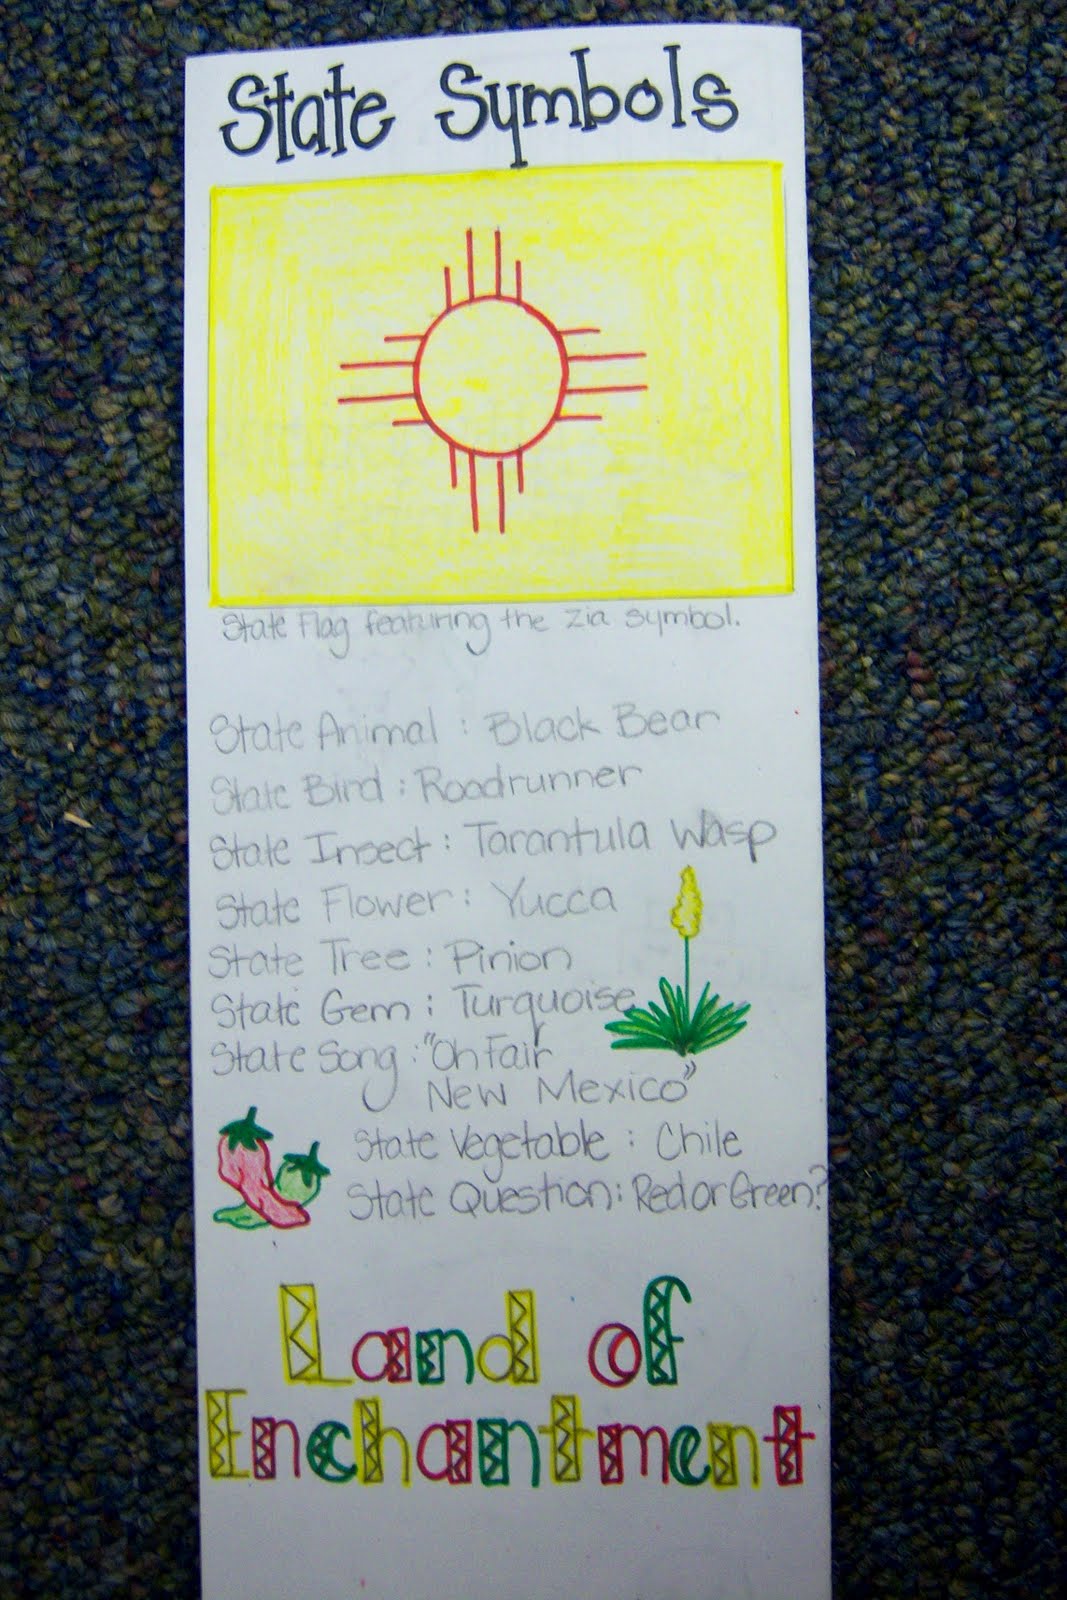 State Symbols
State Flag featuring the Zia symbol.
State Animal : Black Bear
State Bird : Roadrunner
State Insect : Tarantula Wasp
State Flower : Yucca
State Tree : Pinion
State Gem : Turquoise
State Song : "Oh Fair
New Mexico"
State Vegetable : Chile
State Question : Red or Green?
Land of
Enchantment